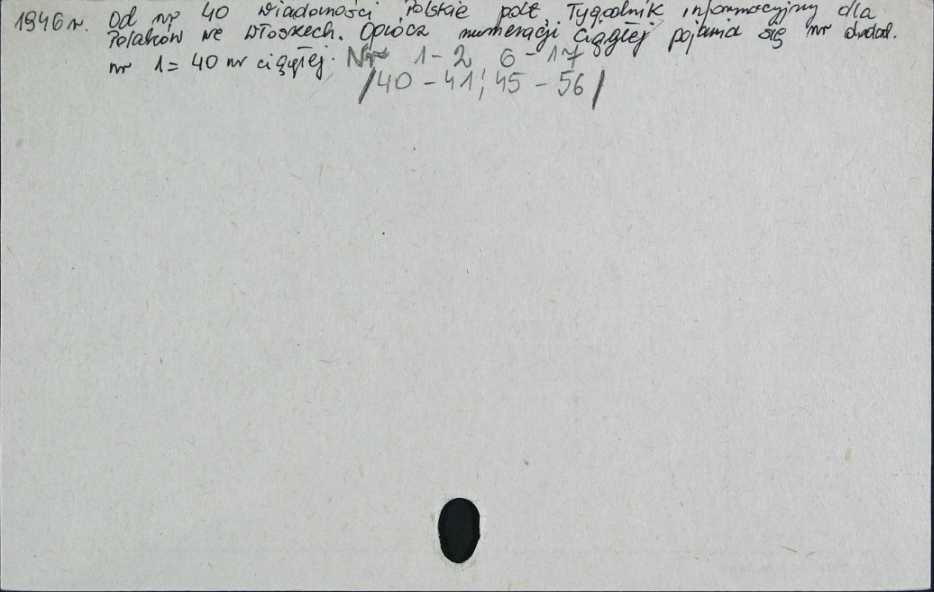 1946 r. Od nr 40 Wiadomości Polskie podt. Tygodnik informacyjny dla
Polaków we Włoszech. Oprócz numeracji ciągłej pojawia się nr dodat.
nr 1 = 40 nr ciągłej. Nr 1-2 6-17
/40-41; 45-56/